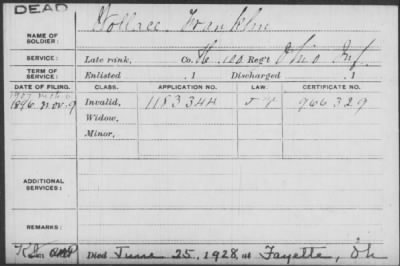 DEAD
NAME OF SOLDIER: Wallace, Franklin
SERVICE: Late rank, Co. H, 100 Reg't Ohio Inf.
TERM OF SERVICE: Enlisted .1 Discharged .1
DATE OF FILING. CLASS. APPLICATION NO. LAW. CERTIFICATE NO.
1907
1896 Nov. 9 Invalid, 1183344 966329
Widow,
Minor,
ADDITIONAL SERVICES:
REMARKS:
Died June 25, 1928, at Fayette, Oh